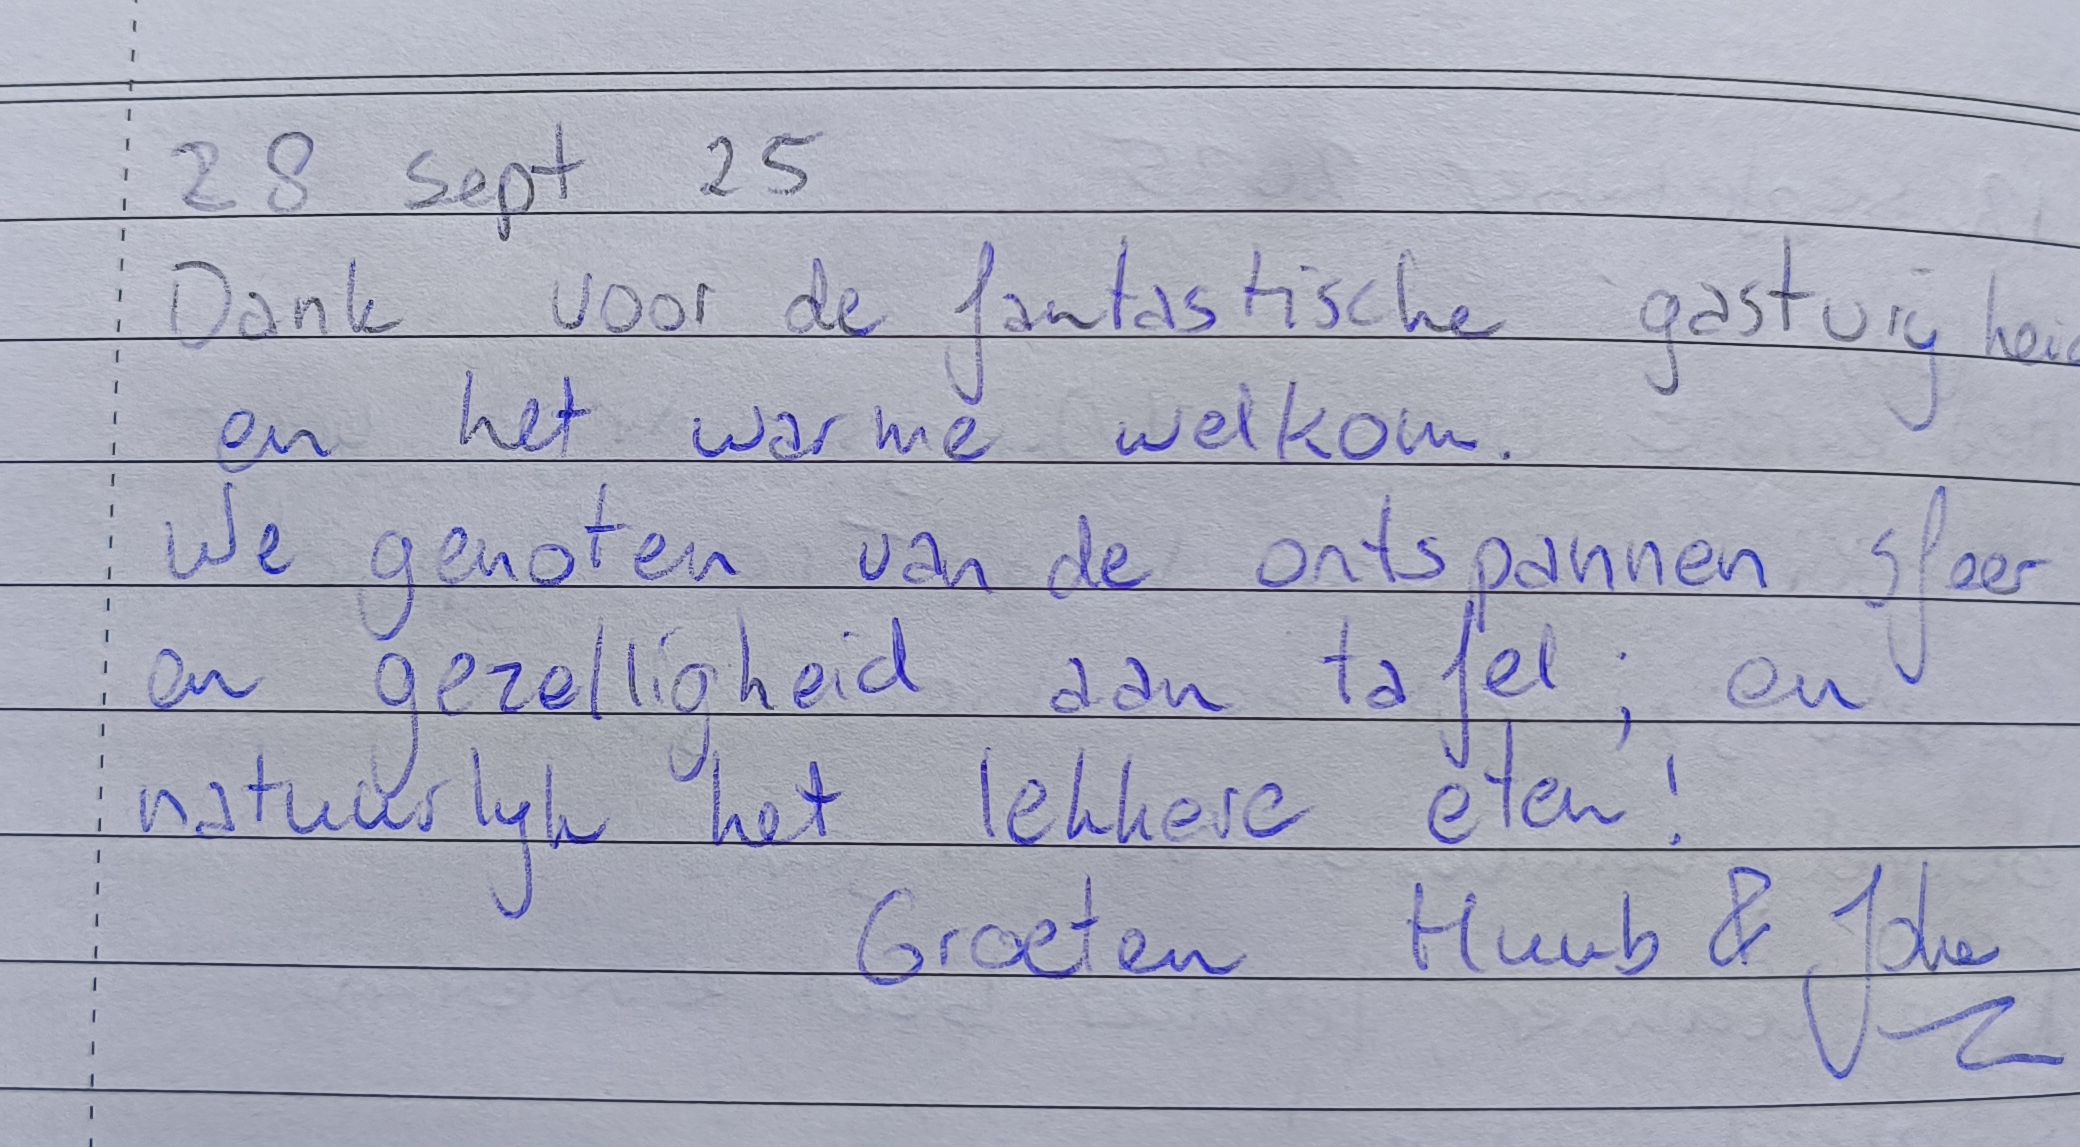 28 sept 25
Dank voor de fantastische gastvrijheid
en het warme welkom.
We genoten van de ontspannen sfeer
en gezelligheid aan tafel; en
natuurlijk het lekkere eten!
Groeten Huub & Joke